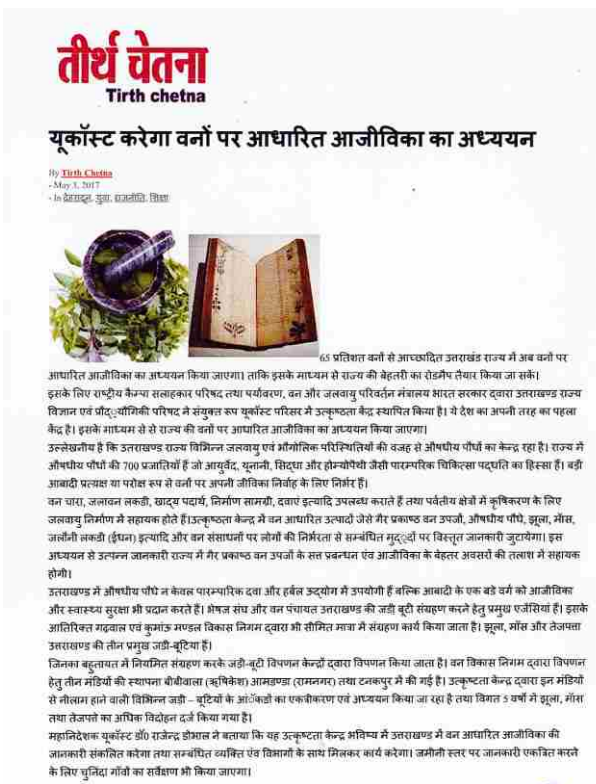 तीर्थ चेतना
Tirth chetna
यूकॉस्ट करेगा वनों पर आधारित आजीविका का अध्ययन
By Tirth Chetna
- May 3, 2017
- In देहरादून, युवा, राजनीति, शिक्षा
65 प्रतिशत वनों से आच्छादित उत्तराखंड राज्य में अब वनों पर
आधारित आजीविका का अध्ययन किया जाएगा। ताकि इसके माध्यम से राज्य की बेहतरी का रोडमैप तैयार किया जा सकें।
इसके लिए राष्ट्रीय कैम्पा सलाहकार परिषद तथा पर्यावरण, वन और जलवायु परिवर्तन मंत्रालय भारत सरकार द्वारा उत्तराखण्ड राज्य
विज्ञान एवं प्रौद्योगिकी परिषद में संयुक्त रूप यूकॉस्ट परिसर में उत्कृष्ठता केंद्र स्थापित किया है। ये देश का अपनी तरह का पहला
केंद्र है। इसके माध्यम से से राज्य की वनों पर आधारित आजीविका का अध्ययन किया जाएगा।
उल्लेखनीय है कि उतराखण्ड राज्य विभिन्न जलवायु एवं भौगोलिक परिस्थितियों की वजह से औषधीय पौधों का केन्द्र रहा है। राज्य में
औषधीय पौधों की 700 प्रजातियाँ हैं जो आयुर्वेद, यूनानी, सिद्धा और होम्योपैथी जैसी पारम्परिक चिकित्सा पद्धति का हिस्सा हैं। बड़ी
आबादी प्रत्यक्ष या परोक्ष रूप से वनों पर अपनी जीविका निर्वाह के लिए निर्भर हैं।
वन चारा, जलावन लकडी, खाद्य पदार्थ, निर्माण सामग्री, दवाएं इत्यादि उपलब्ध कराते हैं तथा पर्वतीय क्षेत्रों में कृषिकरण के लिए
जलवायु निर्माण में सहायक होते हैं।उत्कृष्ठता केन्द्र में वन आधारित उत्पादों जेसे गैर प्रकाष्ठ वन उपजों, औषधीय पौधे, झूला, मॉस,
जलौनी लकडी (ईंधन) इत्यादि और वन संसाधनों पर लोगों की निर्भरता से सम्बंधित मुद्दों पर विस्तृत जानकारी जुटायेगा। इस
अध्ययन से उत्पन्न जानकारी राज्य में गैर प्रकाष्ठ वन उपजों के सत्त प्रबन्धन एंव आजीविका के बेहतर अवसरों की तलाश में सहायक
होगी।
उतराखण्ड में औषधीय पौधे न केवल पारम्पारिक दवा और हर्बल उद्योग में उपयोगी हैं बल्कि आबादी के एक बडे वर्ग को आजीविका
और स्वास्थ्य सुरक्षा भी प्रदान करते हैं। भेषज संघ और वन पंचायत उत्तराखण्ड की जडी बूटी संग्रहण करने हेतु प्रमुख एजेंसियां हैं। इसके
आतिरिक्त गढ़वाल एवं कुमांऊ मण्डल विकास निगम द्वारा भी सीमित मात्रा में संग्रहण कार्य किया जाता है। झूला, मॉस और तेजपत्ता
उत्तराखण्ड की तीन प्रमुख जडी-बूटिया हैं।
जिनका बहुतायत में नियमित संग्रहण करके जडी-बूटी विपणन केन्द्रों द्वारा विपणन किया जाता है। वन विकास निगम द्वारा विपणन
हेतु तीन मंडियों की स्थापना बीबीवाला (ऋषिकेश) आमडण्डा (रामनगर) तथा टनकपुर में की गई है। उत्कृष्टता केन्द्र द्वारा इन मंडियों
से नीलाम हाने वाली विभिन्न जडी – बूटियों के आंॅकडों का एकत्रीकरण एवं अध्ययन किया जा रहा है तथा विगत 5 वर्षो में झूला, मॉस
तथा तेजपत्ते का अधिक विदोहन दर्ज किया गया है।
महानिदेशक यूकॉस्ट डॉ0 राजेन्द्र डोभाल ने बताया कि यह उत्कृष्टता केन्द्र भविष्य में उत्तराखण्ड में वन आधारित आजीविका की
जानकारी संकलित करेगा तथा सम्बंधित व्यक्ति एंव विभागों के साथ मिलकर कार्य करेगा। जमीनी स्तर पर जानकारी एकत्रित करने
के लिए चुनिंदा गाँवों का सर्वेक्षण भी किया जाएगा।